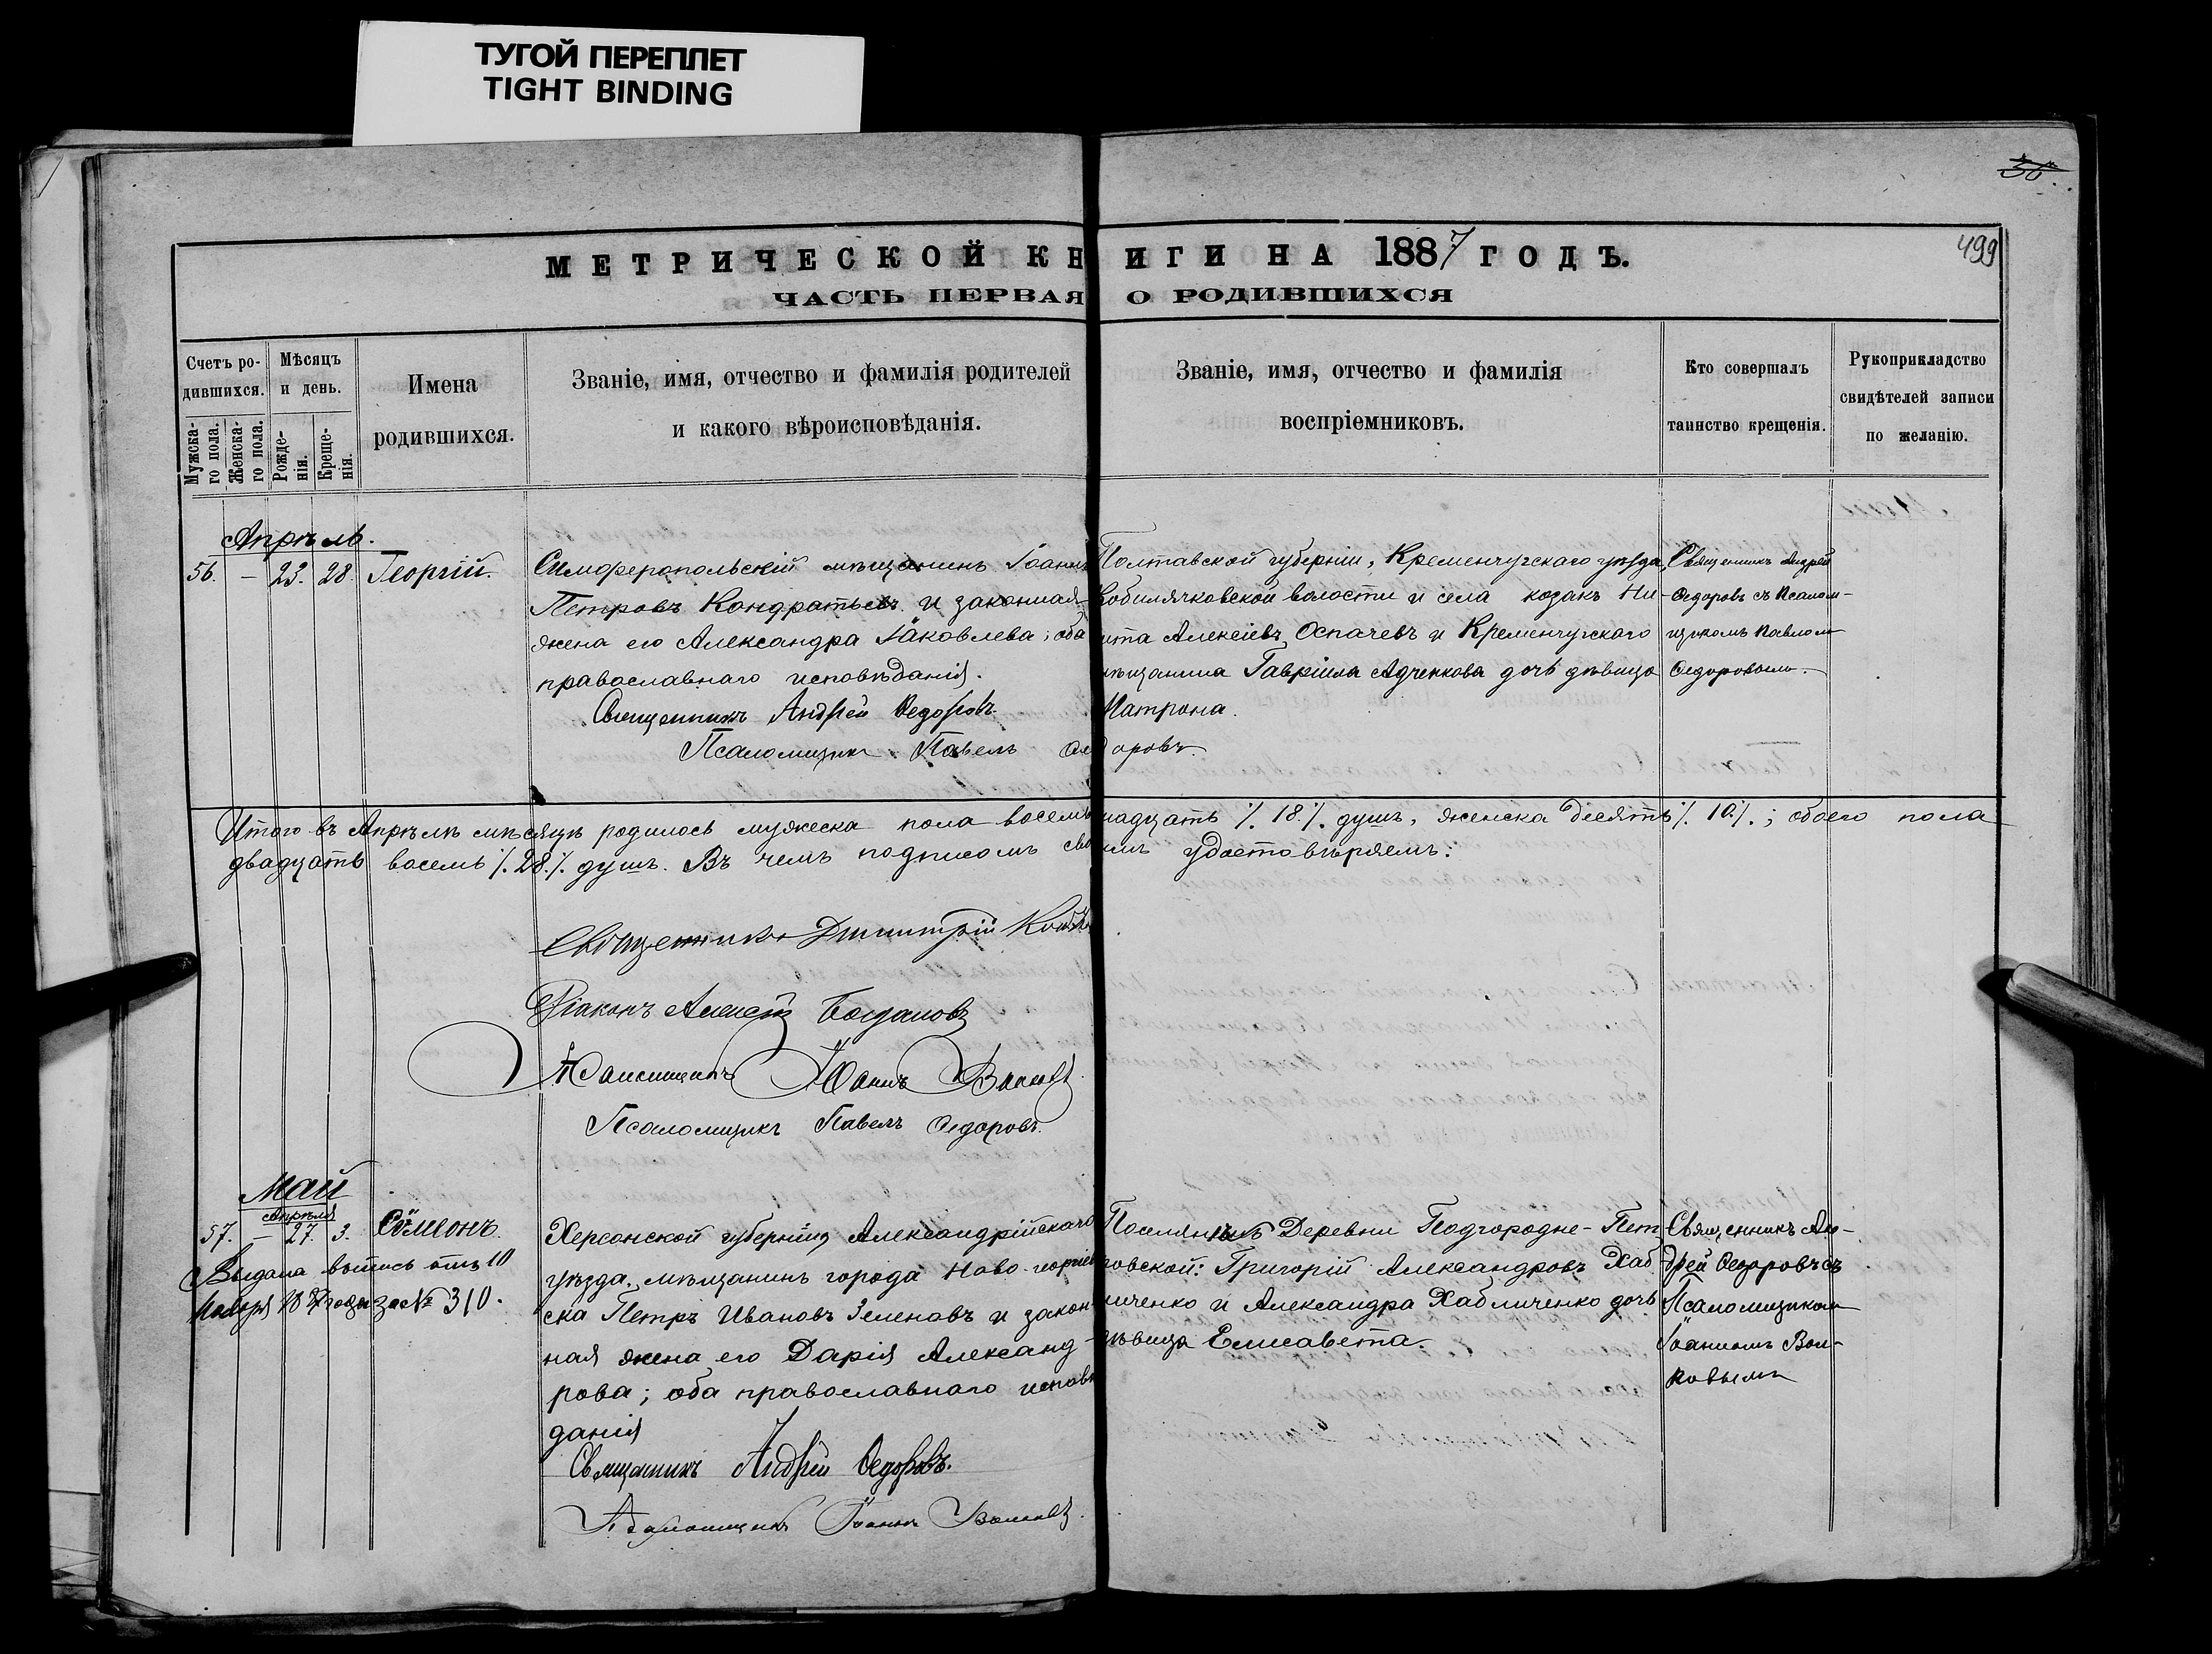 ТУГОЙ ПЕРЕПЛЕТ
TIGHT BINDING
499
МЕТРИЧЕСКОЙ КНИГИ НА 1887 ГОДЪ.
ЧАСТЬ ПЕРВАЯ О РОДИВШИХСЯ
Счетъ ро-
дившихся.
Мужска-
го пола.
Женска-
го пола.
Мѣсяцъ
и день.
Рожде-
нія.
Креще-
нія.
Имена
родившихся.
Званіе, имя, отчество и фамилія родителей
и какого вѣроисповѣданія.
Званіе, имя, отчество и фамилія
воспріемниковъ.
Кто совершалъ
таинство крещенія.
Рукоприкладство
свидѣтелей записи
по желанію.
Апрѣль.
56. — 23. 28. Георгій.
Симферопольскій мѣщанинъ Іоаннъ
Петровъ Кондратьевъ и законная
жена его Александра Іаковлева; оба
православнаго исповѣданія.
Священникъ Андрей Ѳедоровъ.
Псаломщикъ Павелъ Ѳедоровъ.
Полтавской губерніи, Кременчугскаго уѣзда,
Кобилячковской волости и села козакъ Ни-
кита Алексіевъ Оспачевъ и Кременчугскаго
мѣщанина Гавріила Адченкова дочь дѣвица
Матрона.
Священникъ Андрей
Ѳедоровъ съ Псалом-
щикомъ Павломъ
Ѳедоровымъ.
Итого въ Апрѣлѣ мѣсяцѣ родилось мужеска пола восемьнадцать ./. 18 ./. душъ, женска десять ./. 10 ./.; обоего пола
двадцать восемь ./. 28 ./. душъ. Въ чемъ подписомъ своимъ удостовѣряемъ:
Священникъ Димитрій
Діаконъ Алексѣй Богдановъ
Псаломщикъ Іоаннъ Волковъ
Псаломщикъ Павелъ Ѳедоровъ.
Май
Апрѣля
57. — 27. 3. Сѵмеонъ.
Выдана выпись отъ 10
Ноября 1887 года за № 310.
Херсонской губерніи, Александрійскаго
уѣзда, мѣщанинъ города Ново-георгіев-
ска Петръ Ивановъ Зеленовъ и закон-
ная жена его Дарія Александ-
рова; оба православнаго исповѣ-
данія
Священникъ Андрей Ѳедоровъ.
Псаломщикъ Іоаннъ Волковъ.
Поселянинъ Деревни Подгородне-Пет
ровской: Григорій Александровъ Хаб
личенко и Александра Хабличенко дочь
дѣвица Елисавета.
Священникъ Ан-
дрей Ѳедоровъ съ
Псаломщикомъ
Іоанномъ Вол-
ковымъ